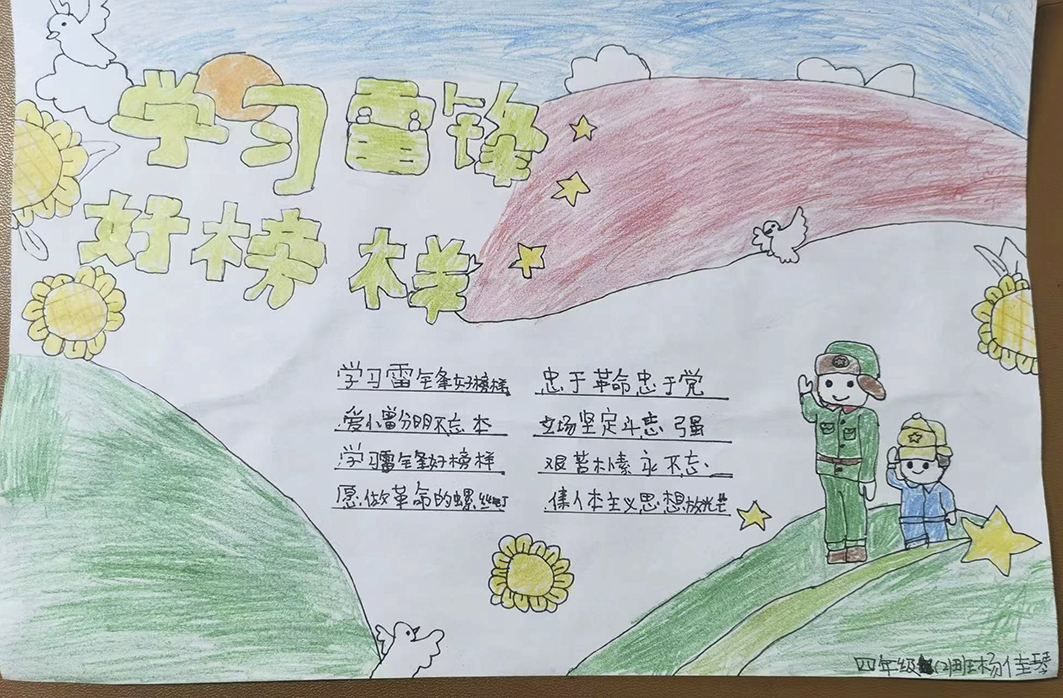 学习雷锋
好榜样
学习雷锋好榜样 忠于革命忠于党
爱憎分明不忘本 立场坚定斗志强
学习雷锋好榜样 艰苦朴素永不忘
愿做革命的螺丝钉 集体主义思想放光芒
四年级(2)班杨佳琴